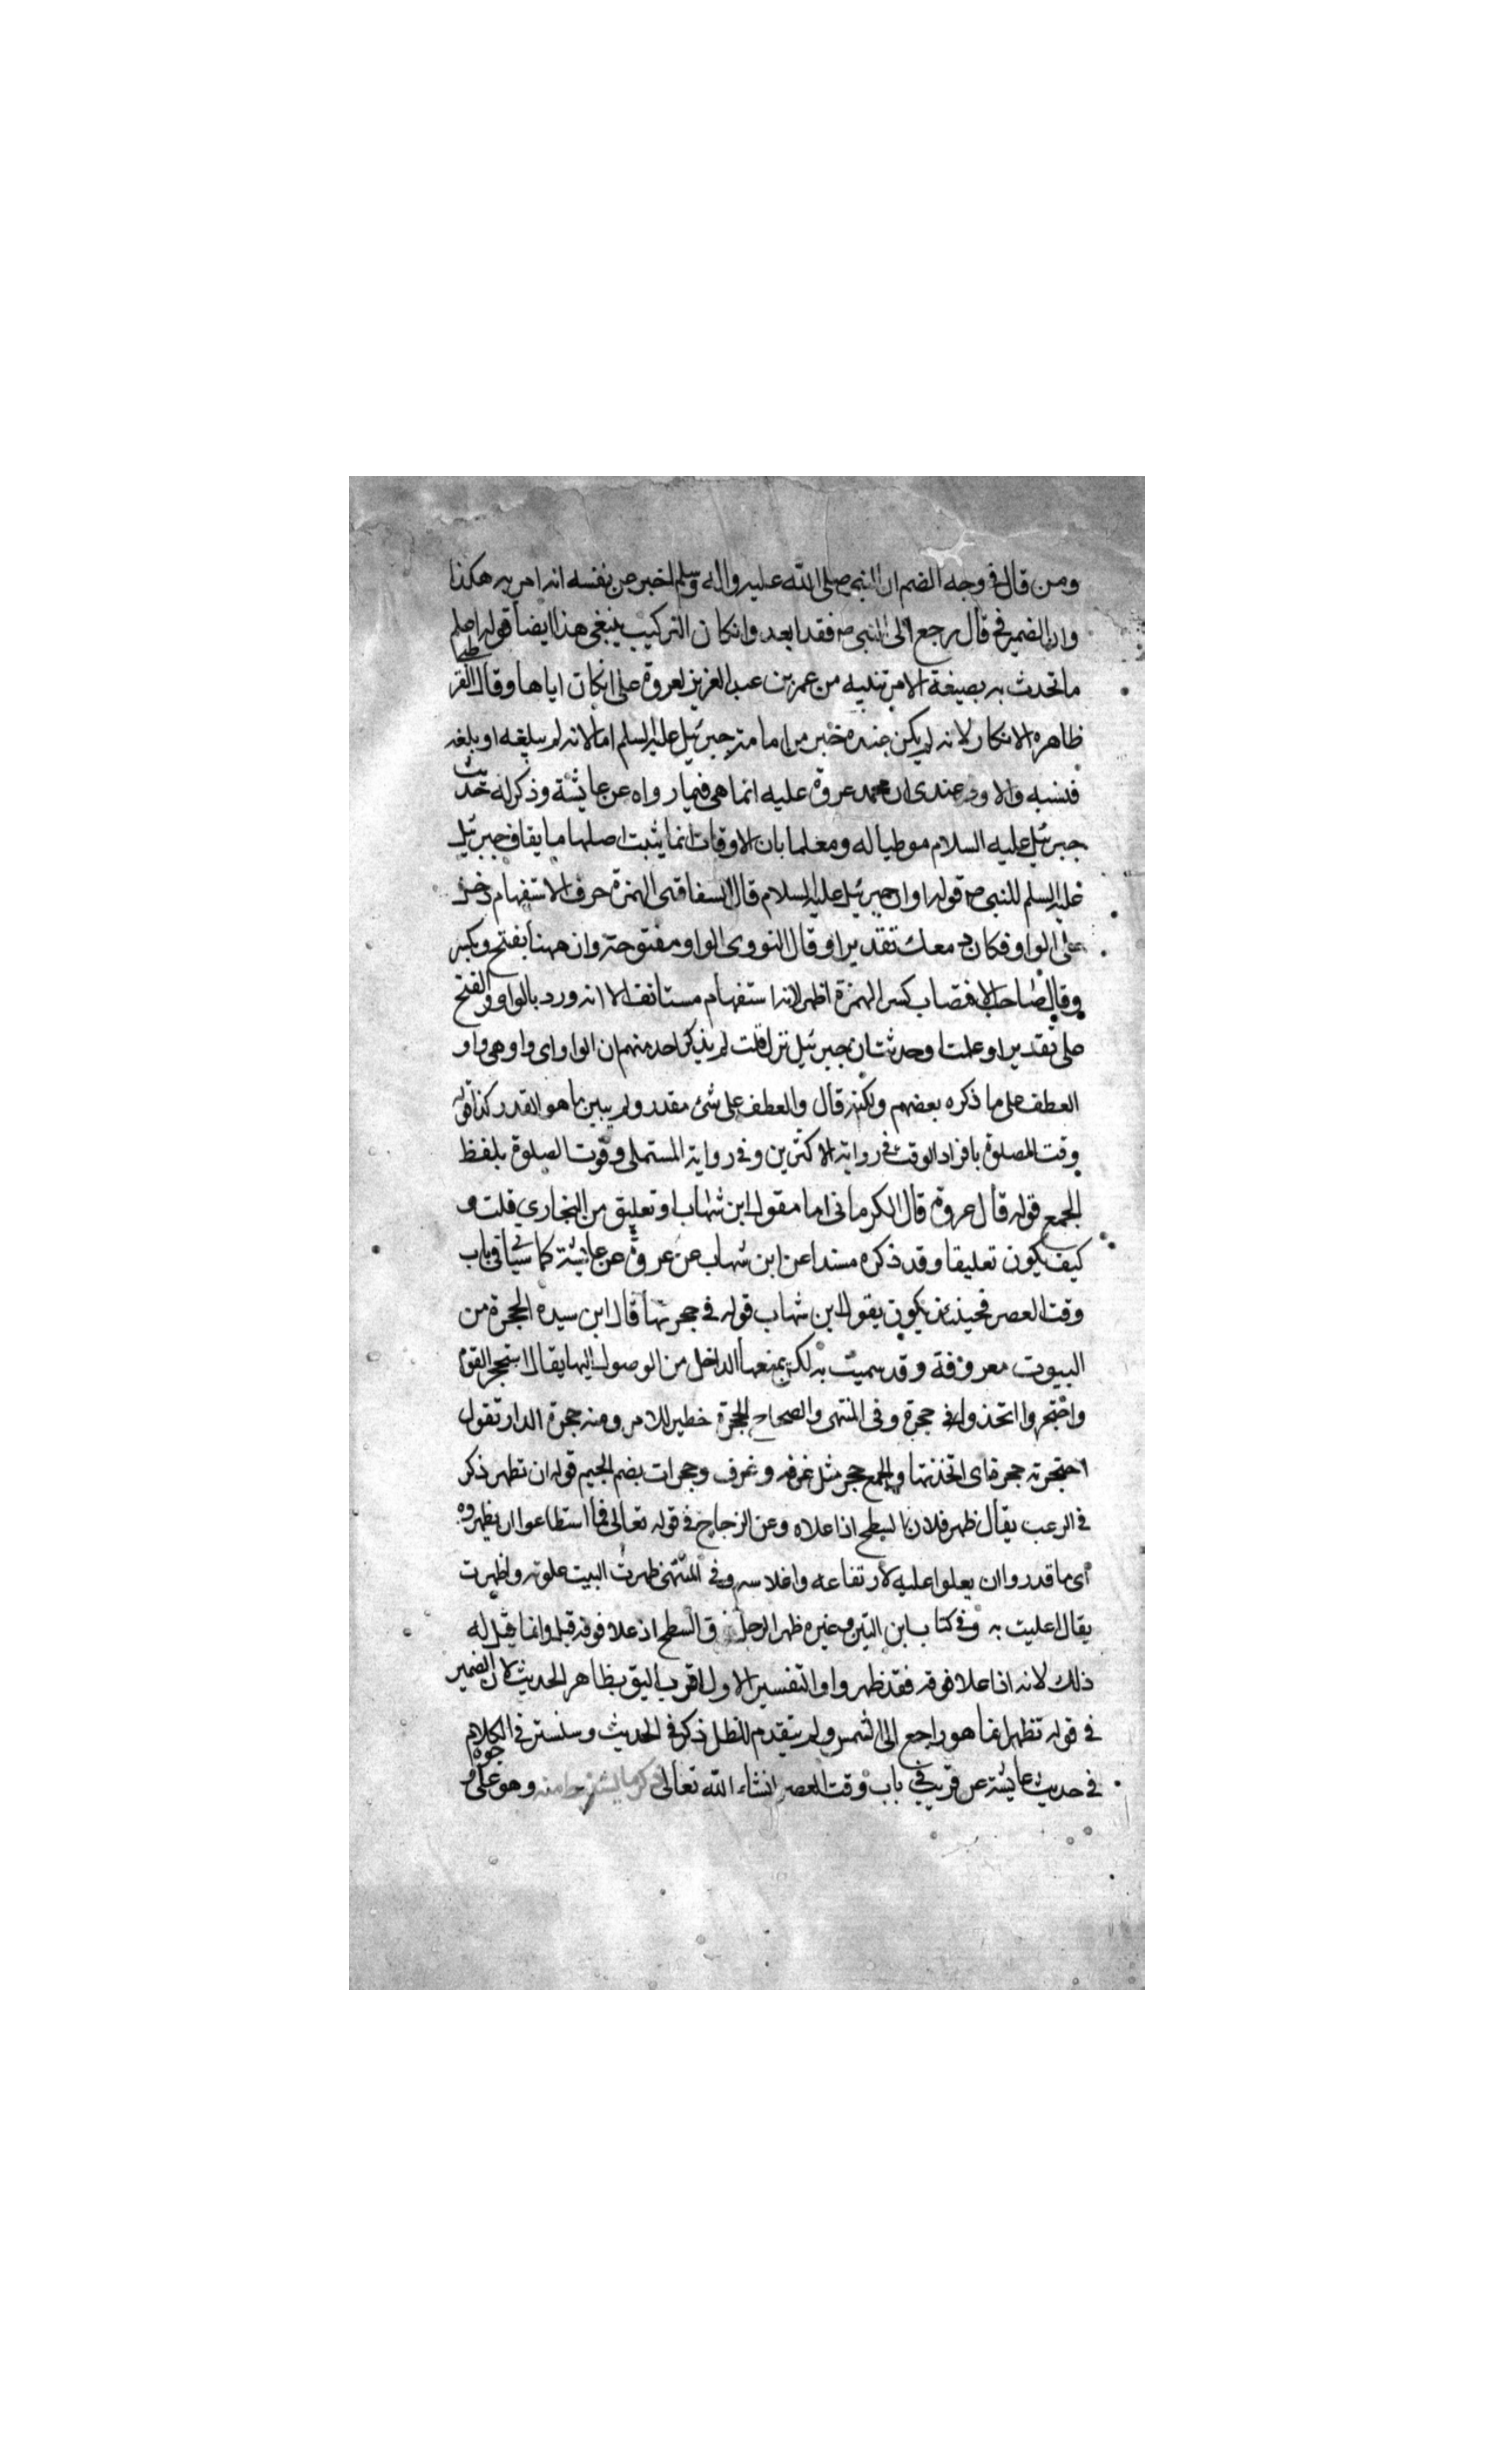 ومن قال في وجه الضم ان النبي صلى الله عليه واله وسلم اخبر عن نفسه انه امر به هكذا
وان الضمير في قال يرجع الى النبي صـ فقد ابعد وان كان التركيب ينبغي هذا ايضا قوله اعلم
ما تحدث به بصيغة الامر تنبيه من عمر بن عبد العزيز لعروة على انكاره اياها وقال القرطبي
ظاهره الانكار لانه لم يكن عنده خبر من امامة جبرئيل عليه السلم اما لانه لم يبلغه او بلغه
فنسيه والاولى عندي ان حجة عروة عليه انما هي فيما رواه عن عايشة وذكر له حديث
جبرئيل عليه السلام موطيا له ومعلما بان الاوقات انما يثبت اصلها بايقاف جبرئيل
عليه السلم للنبي صـ قوله او ان جبرئيل عليه السلام قال السفاقسي الهمزة حرف الاستفهام دخلت
على الواو فكان ذلك تقديرا وقال النووي الواو مفتوحة وان ههنا بفتح وبكسر
وقال صاحب الاقتضاب كسر الهمزة اظهر لانه استفهام مستانف الا انه ورد بالواو والفتح
على تقدير او علمت او حدثت ان جبرئيل نزل قلت لم يذكر احد منهم ان الواو اي واو هي واو
العطف على ما ذكره بعضهم ولكنه قال والعطف على شئ مقدر ولم يبين ما هو المقدر كذا قوله
وقت الصلوة بافراد الوقت في رواية الاكثرين وفي رواية المستملي وقوت الصلوة بلفظ
الجمع قوله قال عروة قال الكرماني اما مقول ابن شهاب او تعليق من البخاري قلت و
كيف يكون تعليقا وقد ذكره مسندا عن ابن شهاب عن عروة عن عايشة كما سياتي في باب
وقت العصر فحينئذ يكون يقول ابن شهاب قوله في حجرتها قال ابن سيده الحجرة من
البيوت معروفة وقد سميت بذلك لمنعها الداخل من الوصول اليها يقال استحجر القوم
واحتجروا اتخذوا في حجرة وفي المنتهى والصحاح الحجرة حظير للامر ومنه حجرة الدار تقول
احتجرته حجرة اي اتخذتها والجمع حجر مثل غرفه وغرف وحجرات بضم الجيم قوله ان تظهر ذكر
في الرعب يقال ظهر فلان السطح اذا علاه وعن الزجاج في قوله تعالى فما استطاعوا ان يظهروه
اي ما قدروا ان يعلوا عليه لارتفاعه واملاسه وفي المنتهى ظهرت البيت علوته واظهرت
يقال اعليت به وفي كتاب ابن التين وغيره ظهر الرجل فوق السطح اذ علا فوقه قيل وانما قيل له
ذلك لانه اذا علا فوقه فقد ظهر واو التفسير الاول اقرب اليق بظاهر الحديث لان الضمير
في قوله تظهر انما هو راجع الى الشمس ولم يتقدم للظل ذكر في الحديث وسنستر في الكلام
في حديث عايشة عن قريب في باب وقت العصر انشاء الله تعالى ذكر ما يستنبط منه وهو على وجوه